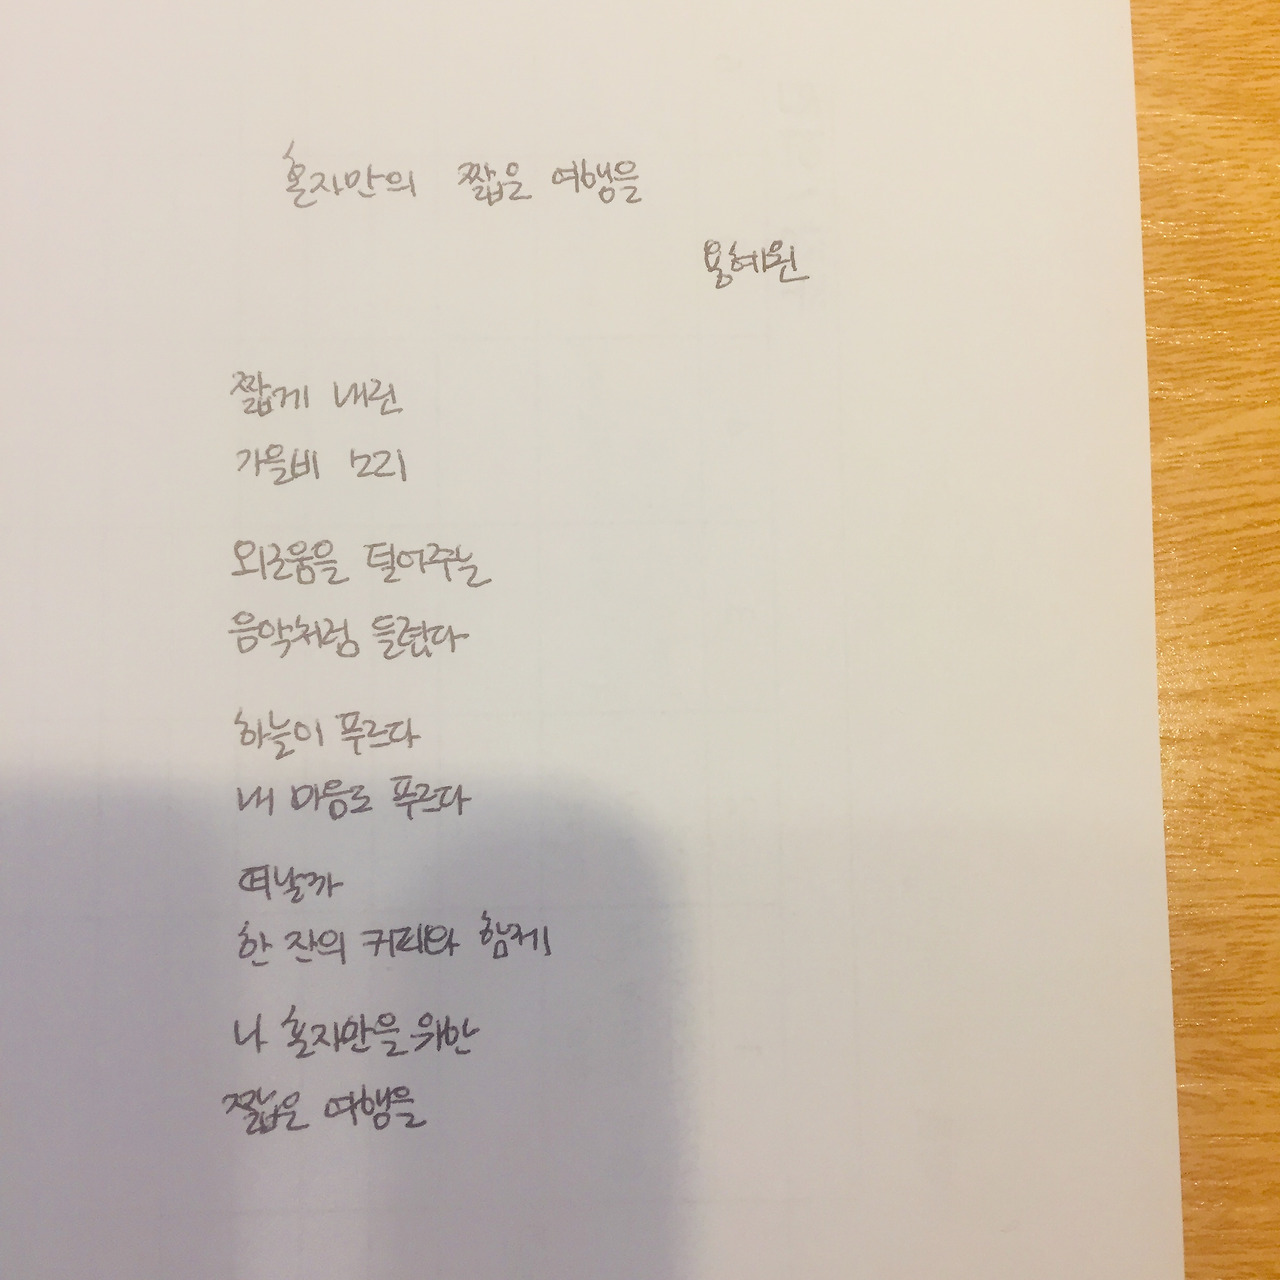 혼자만의 짧은 여행을
용혜원
짧게 내린
가을비 소리
외로움을 덜어주는
음악처럼 들렸다
하늘이 푸르다
내 마음도 푸르다
떠날까
한 잔의 커피와 함께
나 혼자만을 위한
짧은 여행을